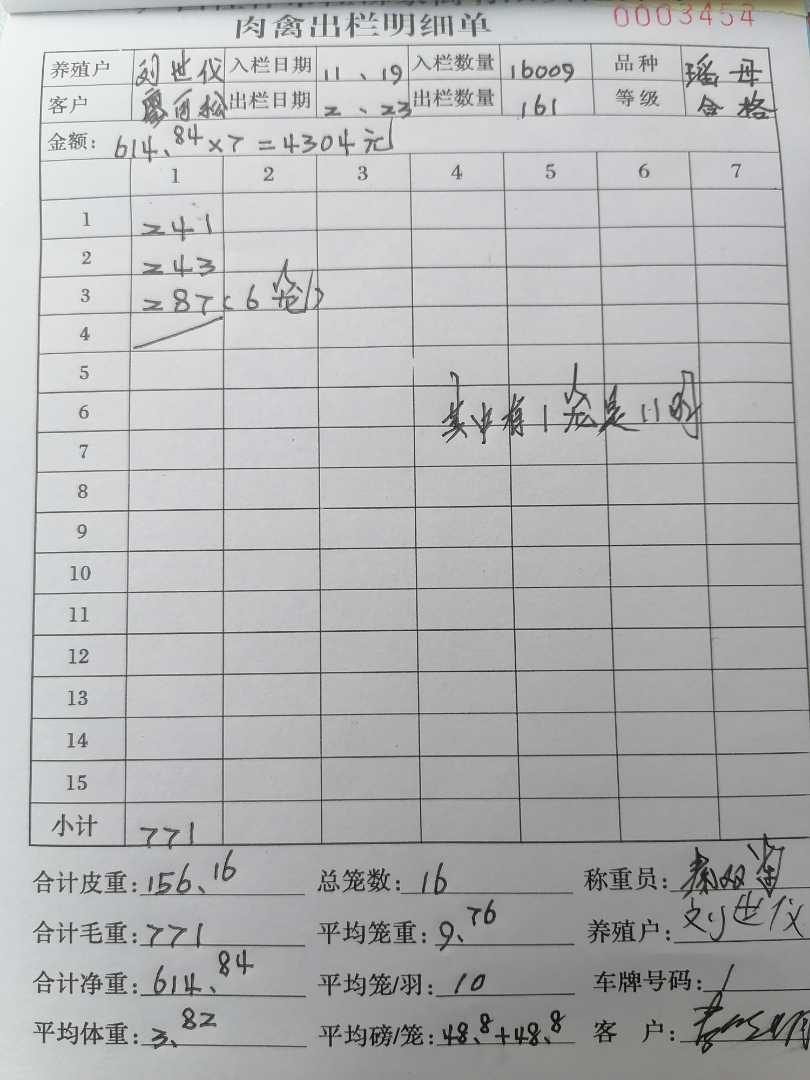 0003454
肉禽出栏明细单
养殖户 刘世仪 入栏日期 11、19 入栏数量 16009 品种 瑶母
客户 廖百松 出栏日期 2、23 出栏数量 161 等级 合格
金额: 614、84×7=4304元
1 2 3 4 5 6 7
1 241
2 243
3 287(6笼)
4
5
6 其中有1笼是11只
7
8
9
10
11
12
13
14
15
小计 771
合计皮重: 156、16 总笼数: 16 称重员:
合计毛重: 771 平均笼重: 9、76 养殖户: 刘世仪
合计净重: 614、84 平均笼/羽: 10 车牌号码: 1
平均体重: 3、82 平均磅/笼: 48、8+48、8 客 户: